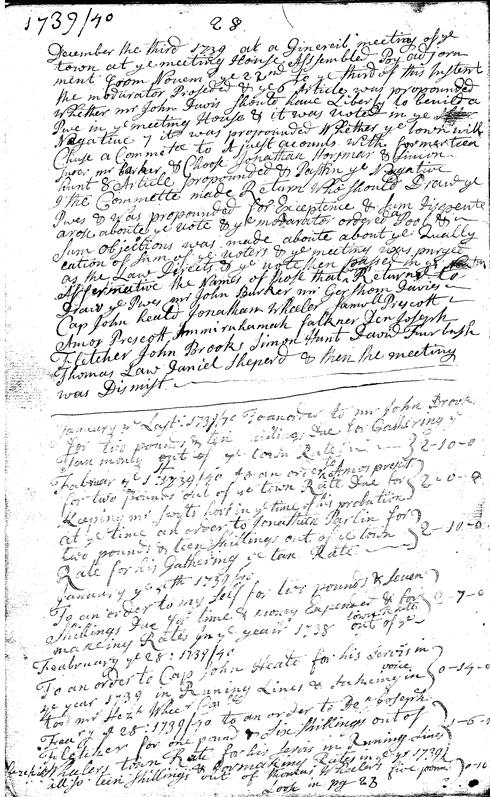 1739/40 28
December the third 1739 at a Genereil meeting of ye
town at ye meeting House Assembled Poy adJorn
ment from Novem ye 22nd to ye third of this Instent
the modarator Prosed & ye 6 Article was propounded
Whether mr John Davis Shoule have Liberty to beuild a
Pwe in ye meeting House & it was voted in ye
Negative 7 it was propounded Whether ye town will
Chuse a Committe to adjust acounts with former trea
surer mr barker & Chose Jonathan Horsmar & Simon
Hunt 8 Article propounded & Past in ye Negative
9 the Committe made Return Who Should Draw ye
Pwes & Was propounded for Exceptence & Sum Dispente
arose aboute ye vote & ye modarator ordred Pool &
Sum objections was made aboute about ye Qually
cation of Sum of ye voters & ye meeting was purged
as the Law Directs & ye vote then passed in ye
Affermative the Names of those that Returned to
Draw ye Pwes mr John Barker mr Gershom Davies
Cap John heald Jonathan Wheeler Samuell Prescott
Amor Prescott Ammiruhamah falkner Den Joseph
Fletcher John Brooks Simon Hunt David Furbush
Thomas Law Daniel Sheperd & then the meeting
was Dismist
January ye Last: 1739/40 To an order to mr John Brooks
for two pounds & ten Shillings Due for Gathering ye
tan money out of ye town Rate 2-10-0
Februar ye 1: 1739/40 to an order to Amos presct
for two pounds out of ye town Rate Due for 2-0-0
Keeping mr Swifts hors in ye time of his probation
at ye time an order to Jonathan Parlin for
two pounds & teen Shillings out of ye town 2-10-0
Rate for his Gathering ye tan Rate
January ye 5th 1739/40
To an order to my Self for two pounds & Seven
Shillings Due for time & money Expended & for 2-7-0
making Rates in ye year 1738 town Rate out of ye
Feabruary ye 28: 1739/40
To an order to Cap John Heale for his Servis in
ye year 1739 in Running Lines & 0-14-0
Feary ye 28: 1739/40 to an order to De n Joseph
Fletcher for one pound & Six Shilkings out of 1-6-0
Wheelers town Rate for his Servis in Running Lines
all so teen Shillings out of thomas Wheelers five pound 0-10
Look in pg 23